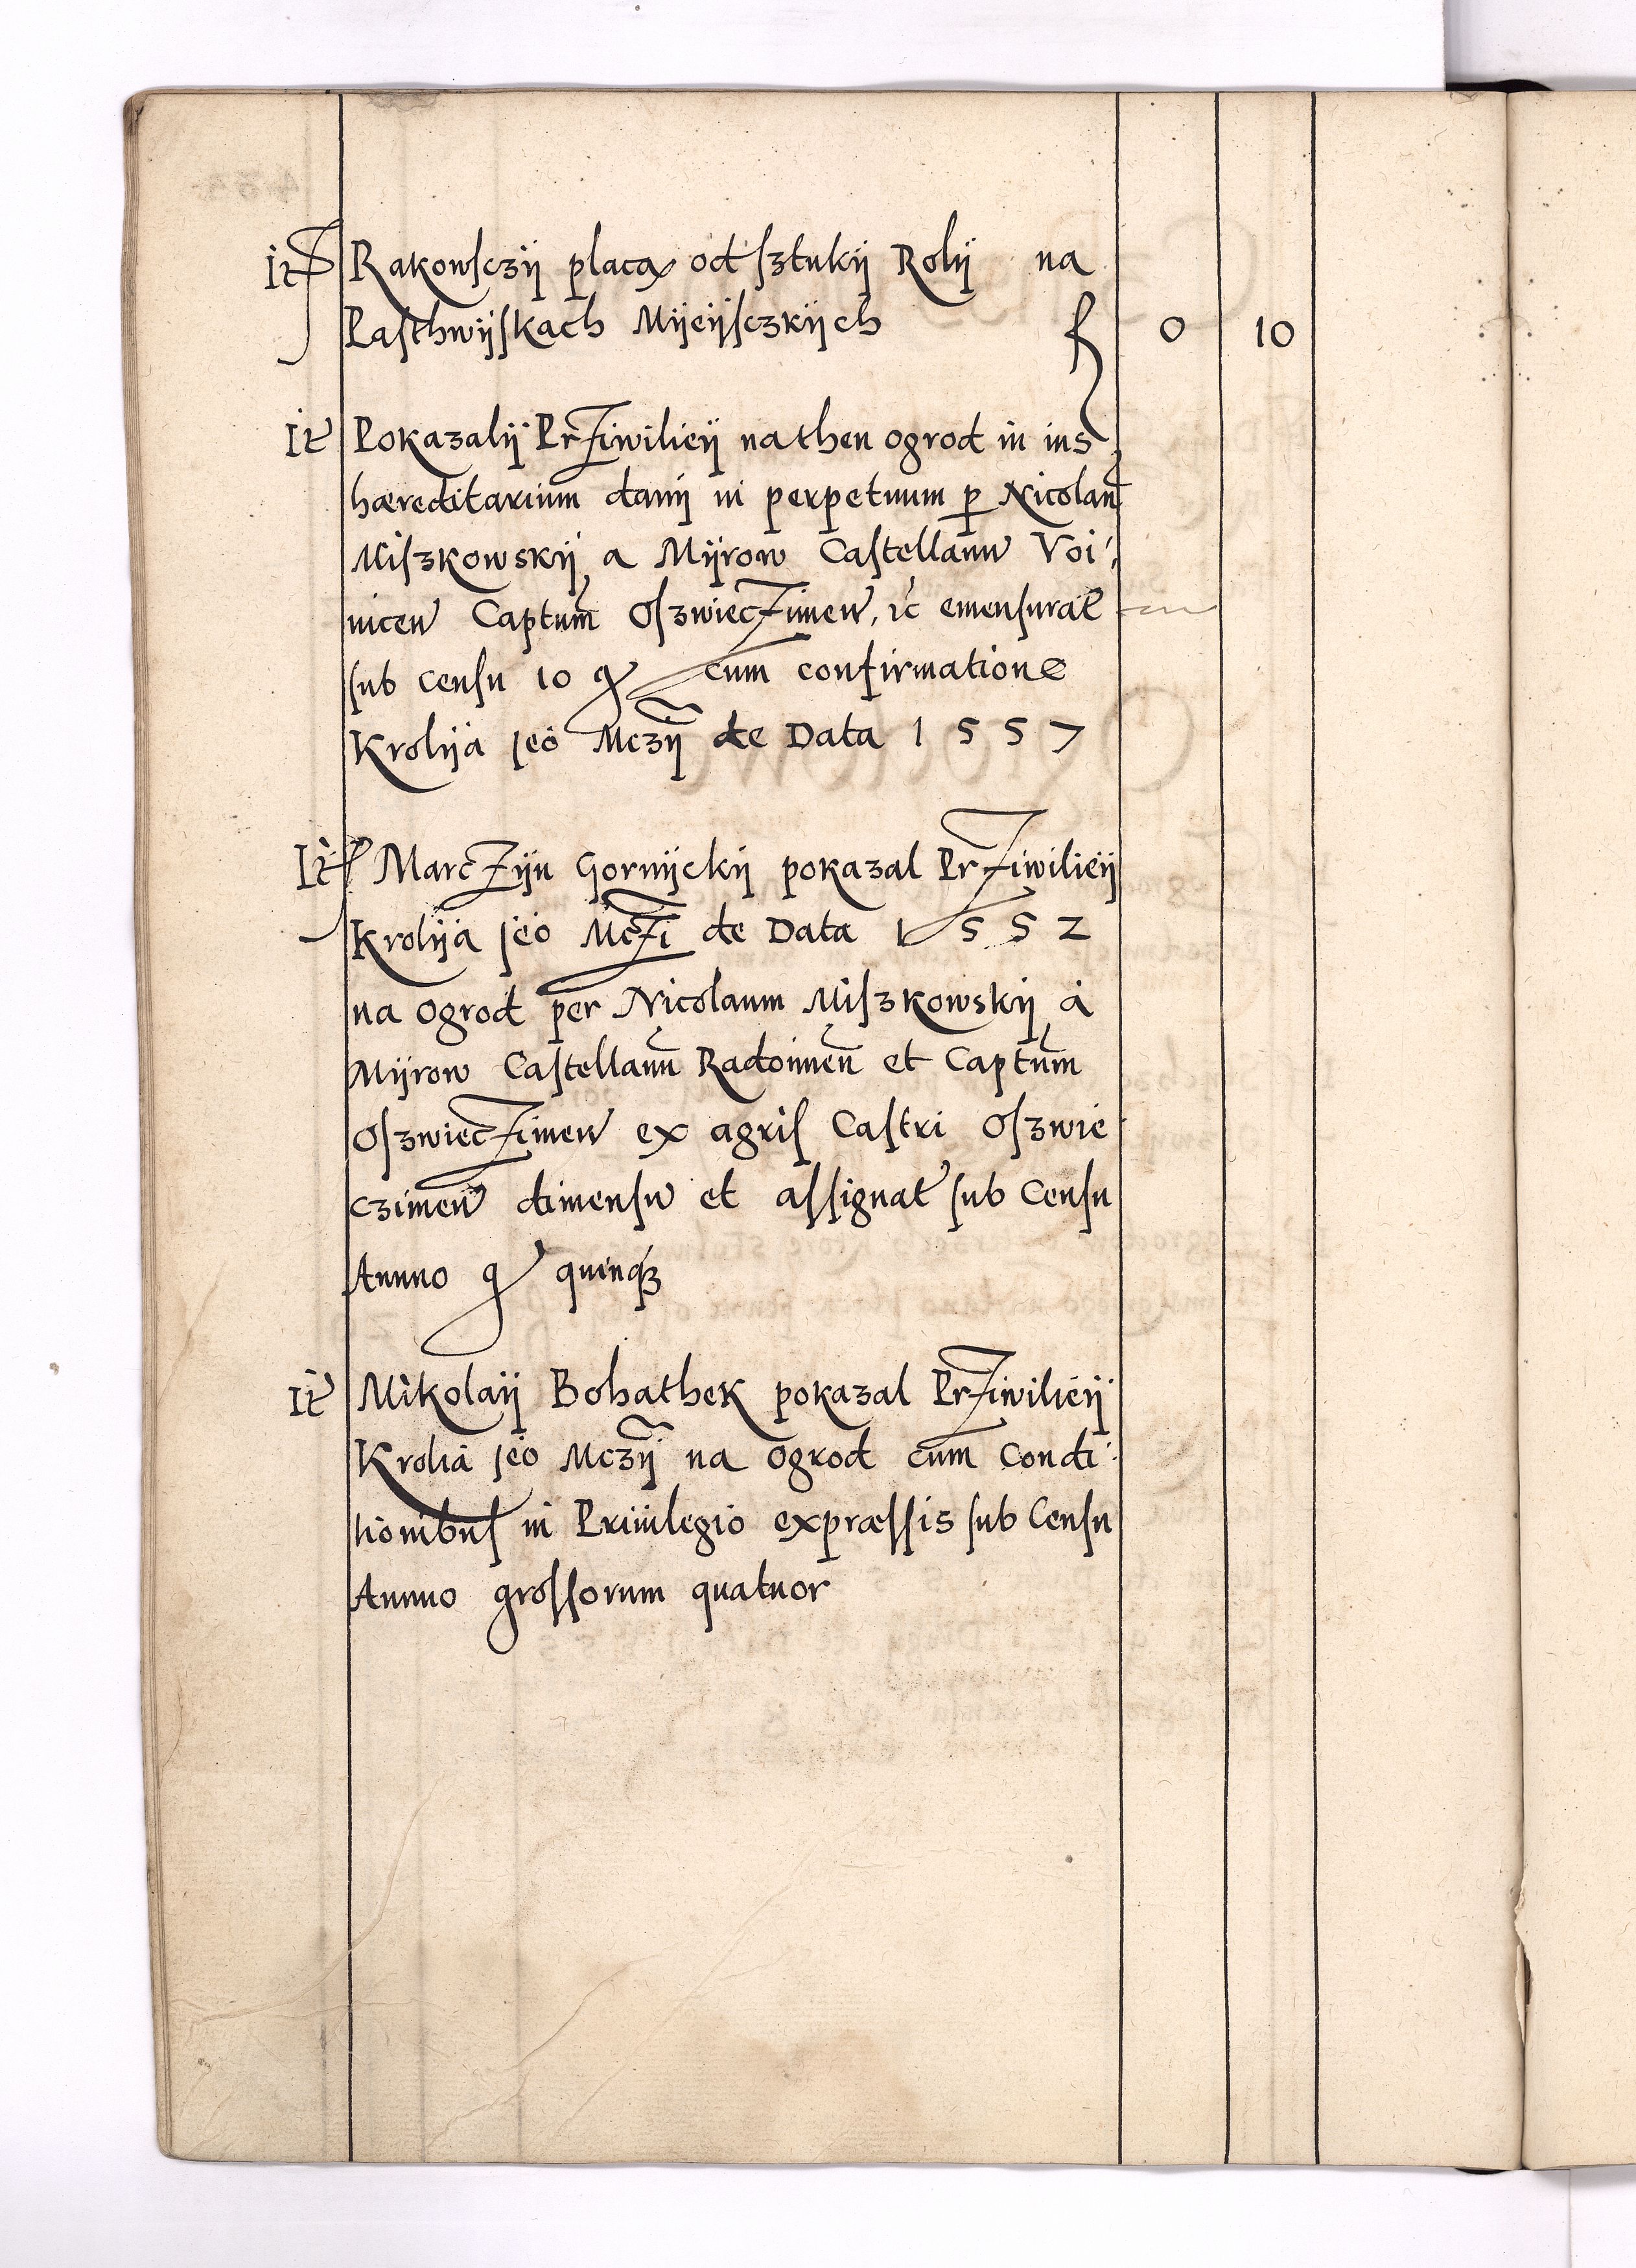 It Rakowsczij placą od sztukij Rolij na
Pasthwijskach Mijeijsczkijch f 0 10
It Pokazalij Prziwilieij na then ogrod in ius
hæreditarium danij in perpetuum p Nicolaū
Miszkowskij a Mijrow Castellanū Voi
nicen Captum̄ Oszwięczimen, ꝛc emensurat
sub censu 10 g cum confirmatione
Krolija jeo Mczij de Data 1557
It Marczijn Gornijckij pokazal Prziwilieij
Krolija jeo Mczi de Data 1552
na ogrod per Nicolaum Miszkowskij à
Mijrow Castellanū Radomien̄ et Captum̄
Oszwieczimen ex agris Castri Oszwie
czimen̄ dimensū et assignat sub Censu
Annuo g quinq3
It Mikolaij Bohathek pokazal Prziwilieij
Krolia jeo Mczij na ogrod cum Condi
tionibus in Priuilegio expræssis sub Censu
Annuo grossorum quatuor